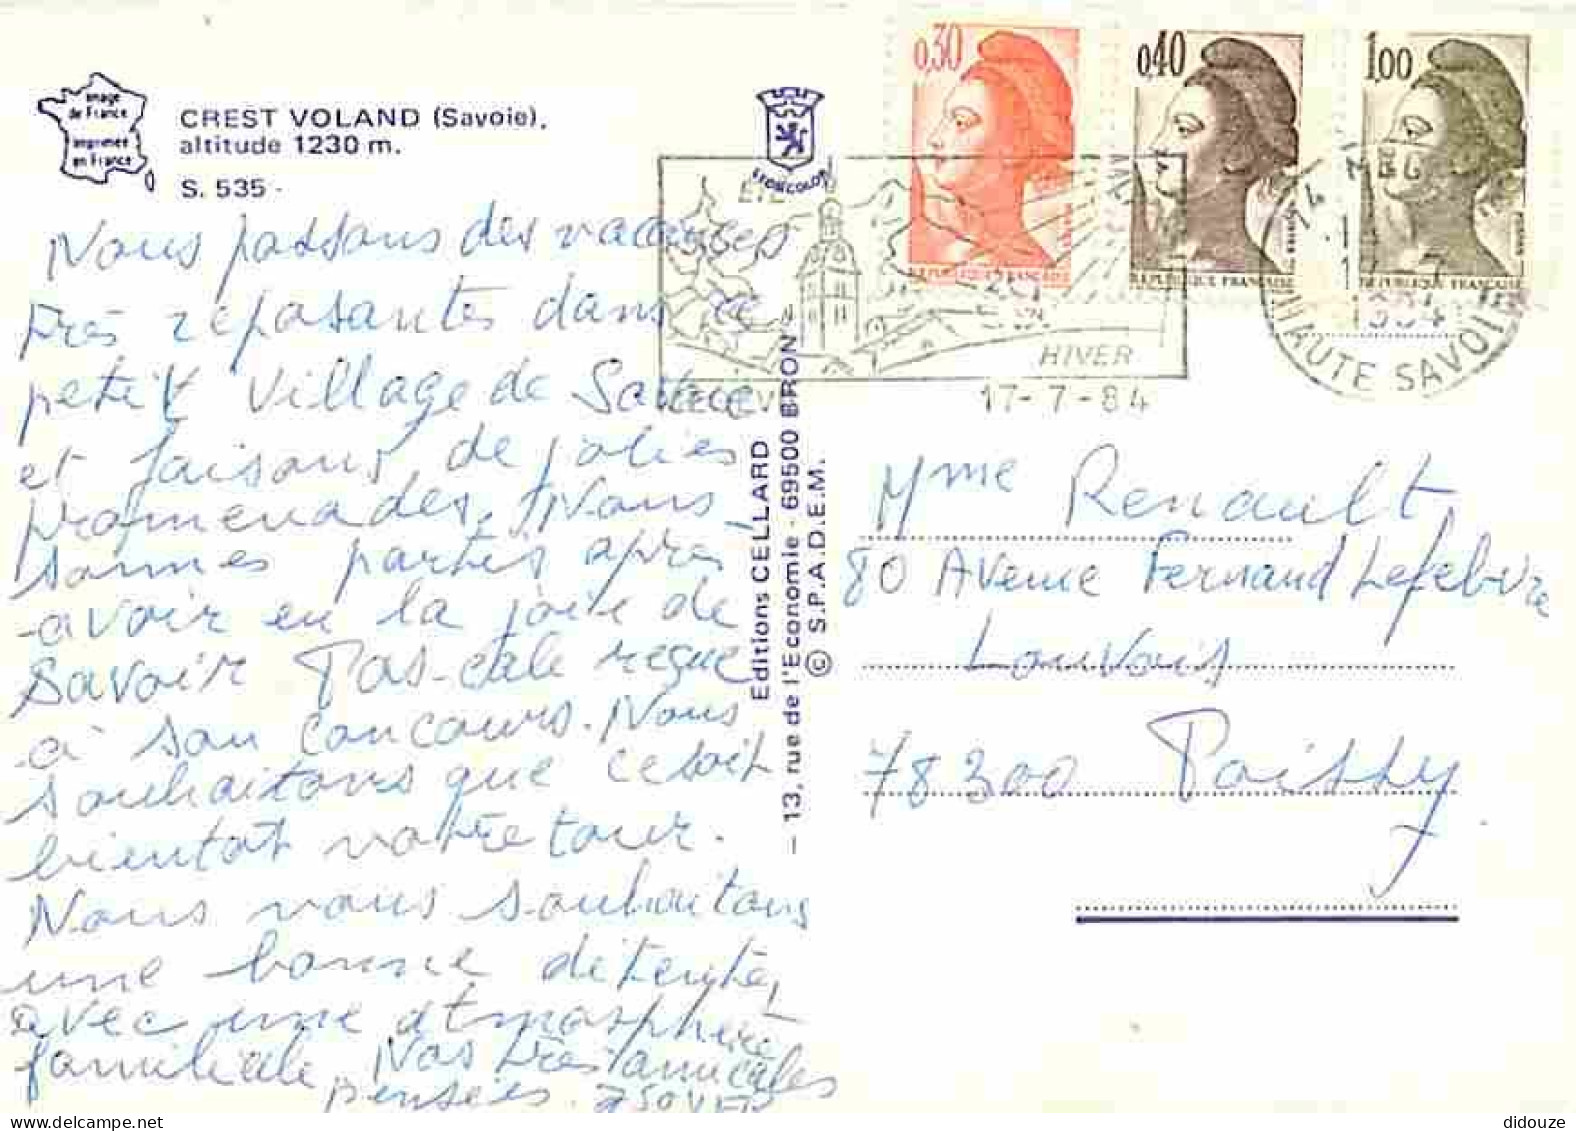 image
de France
imprimée
en France
CREST VOLAND (Savoie).
altitude 1230 m.
S. 535 -
LYONCOLOR
0,30
REPUBLIQUE FRANÇAISE
0,40
REPUBLIQUE FRANÇAISE
1,00
REPUBLIQUE FRANÇAISE
HIVER
17-7-84
HAUTE SAVOIE
Nous passons des vacances
très reposantes dans ce
petit Village de Savoie
et faisons de jolies
promenades. Nous
sommes partis après
avoir eu la joie de
savoir Pascale reçue
à son concours. Nous
souhaitons que ce soit
bientôt votre tour.
Nous vous souhaitons
une bonne détente,
avec une atmosphère
familiale. Nos très amicales
pensées.
Editions CELLARD
— 13, rue de l'Economie - 69500 BRON
© S.P.A.D.E.M.
Mme Renault
80 Avenue Fernand Lefebvre
Louvois
78300 Poissy
didouze